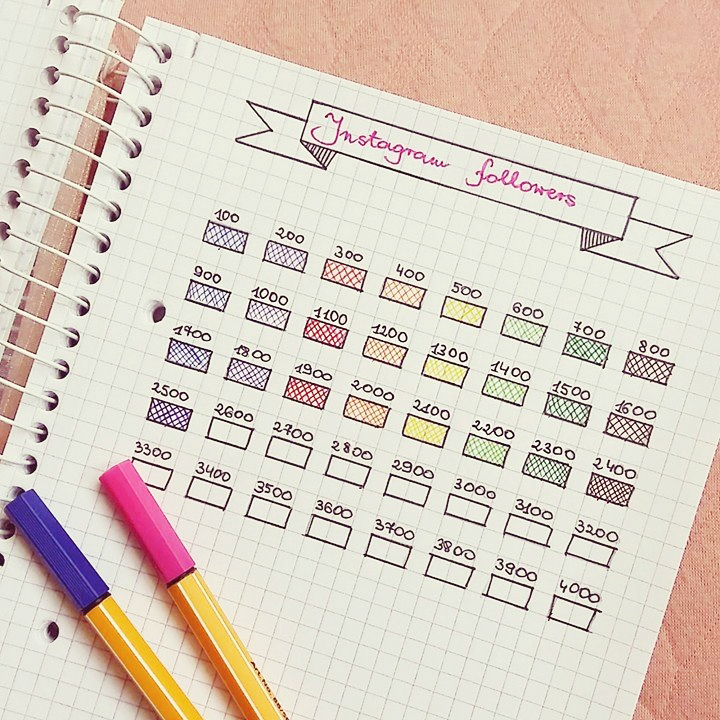 Instagram followers
100 200 300 400 500 600 700 800
900 1000 1100 1200 1300 1400 1500 1600
1700 1800 1900 2000 2100 2200 2300 2400
2500 2600 2700 2800 2900 3000 3100 3200
3300 3400 3500 3600 3700 3800 3900 4000